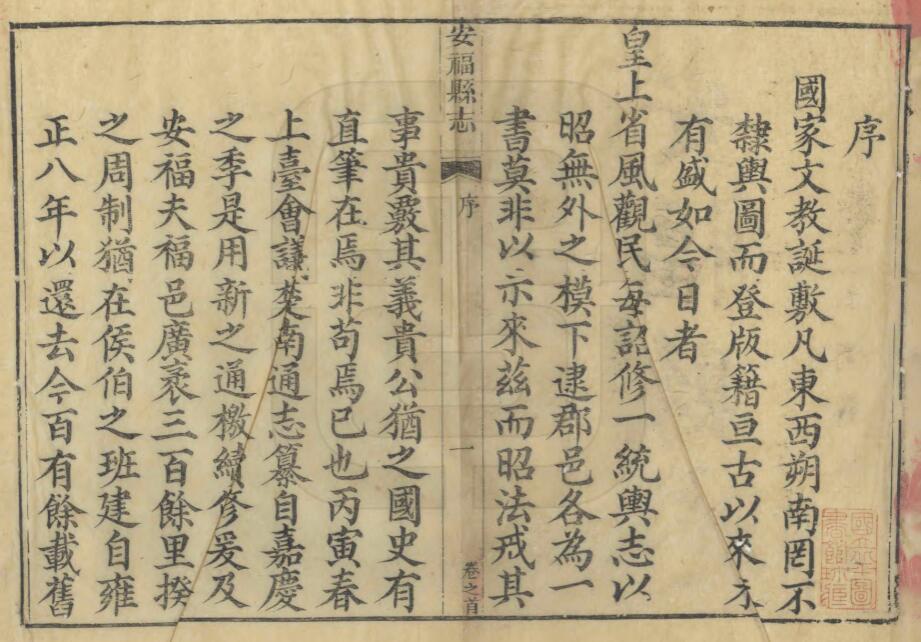 序
國家文教誕敷凡東西朔南罔不
隸輿圖而登版籍亘古以來未
有盛如今日者
皇上省風觀民每詔修一統輿志以
昭無外之模下逮郡邑各為一
書莫非以示來茲而昭法戒其
安福縣志
序
一
卷之首
事貴覈其義貴公猶之國史有
直筆在焉非苟焉已也丙寅春
上臺會議楚南通志纂自嘉慶
之季是用新之通檄續修爰及
安福夫福邑廣袤三百餘里揆
之周制猶在侯伯之班建自雍
正八年以還去今百有餘載舊